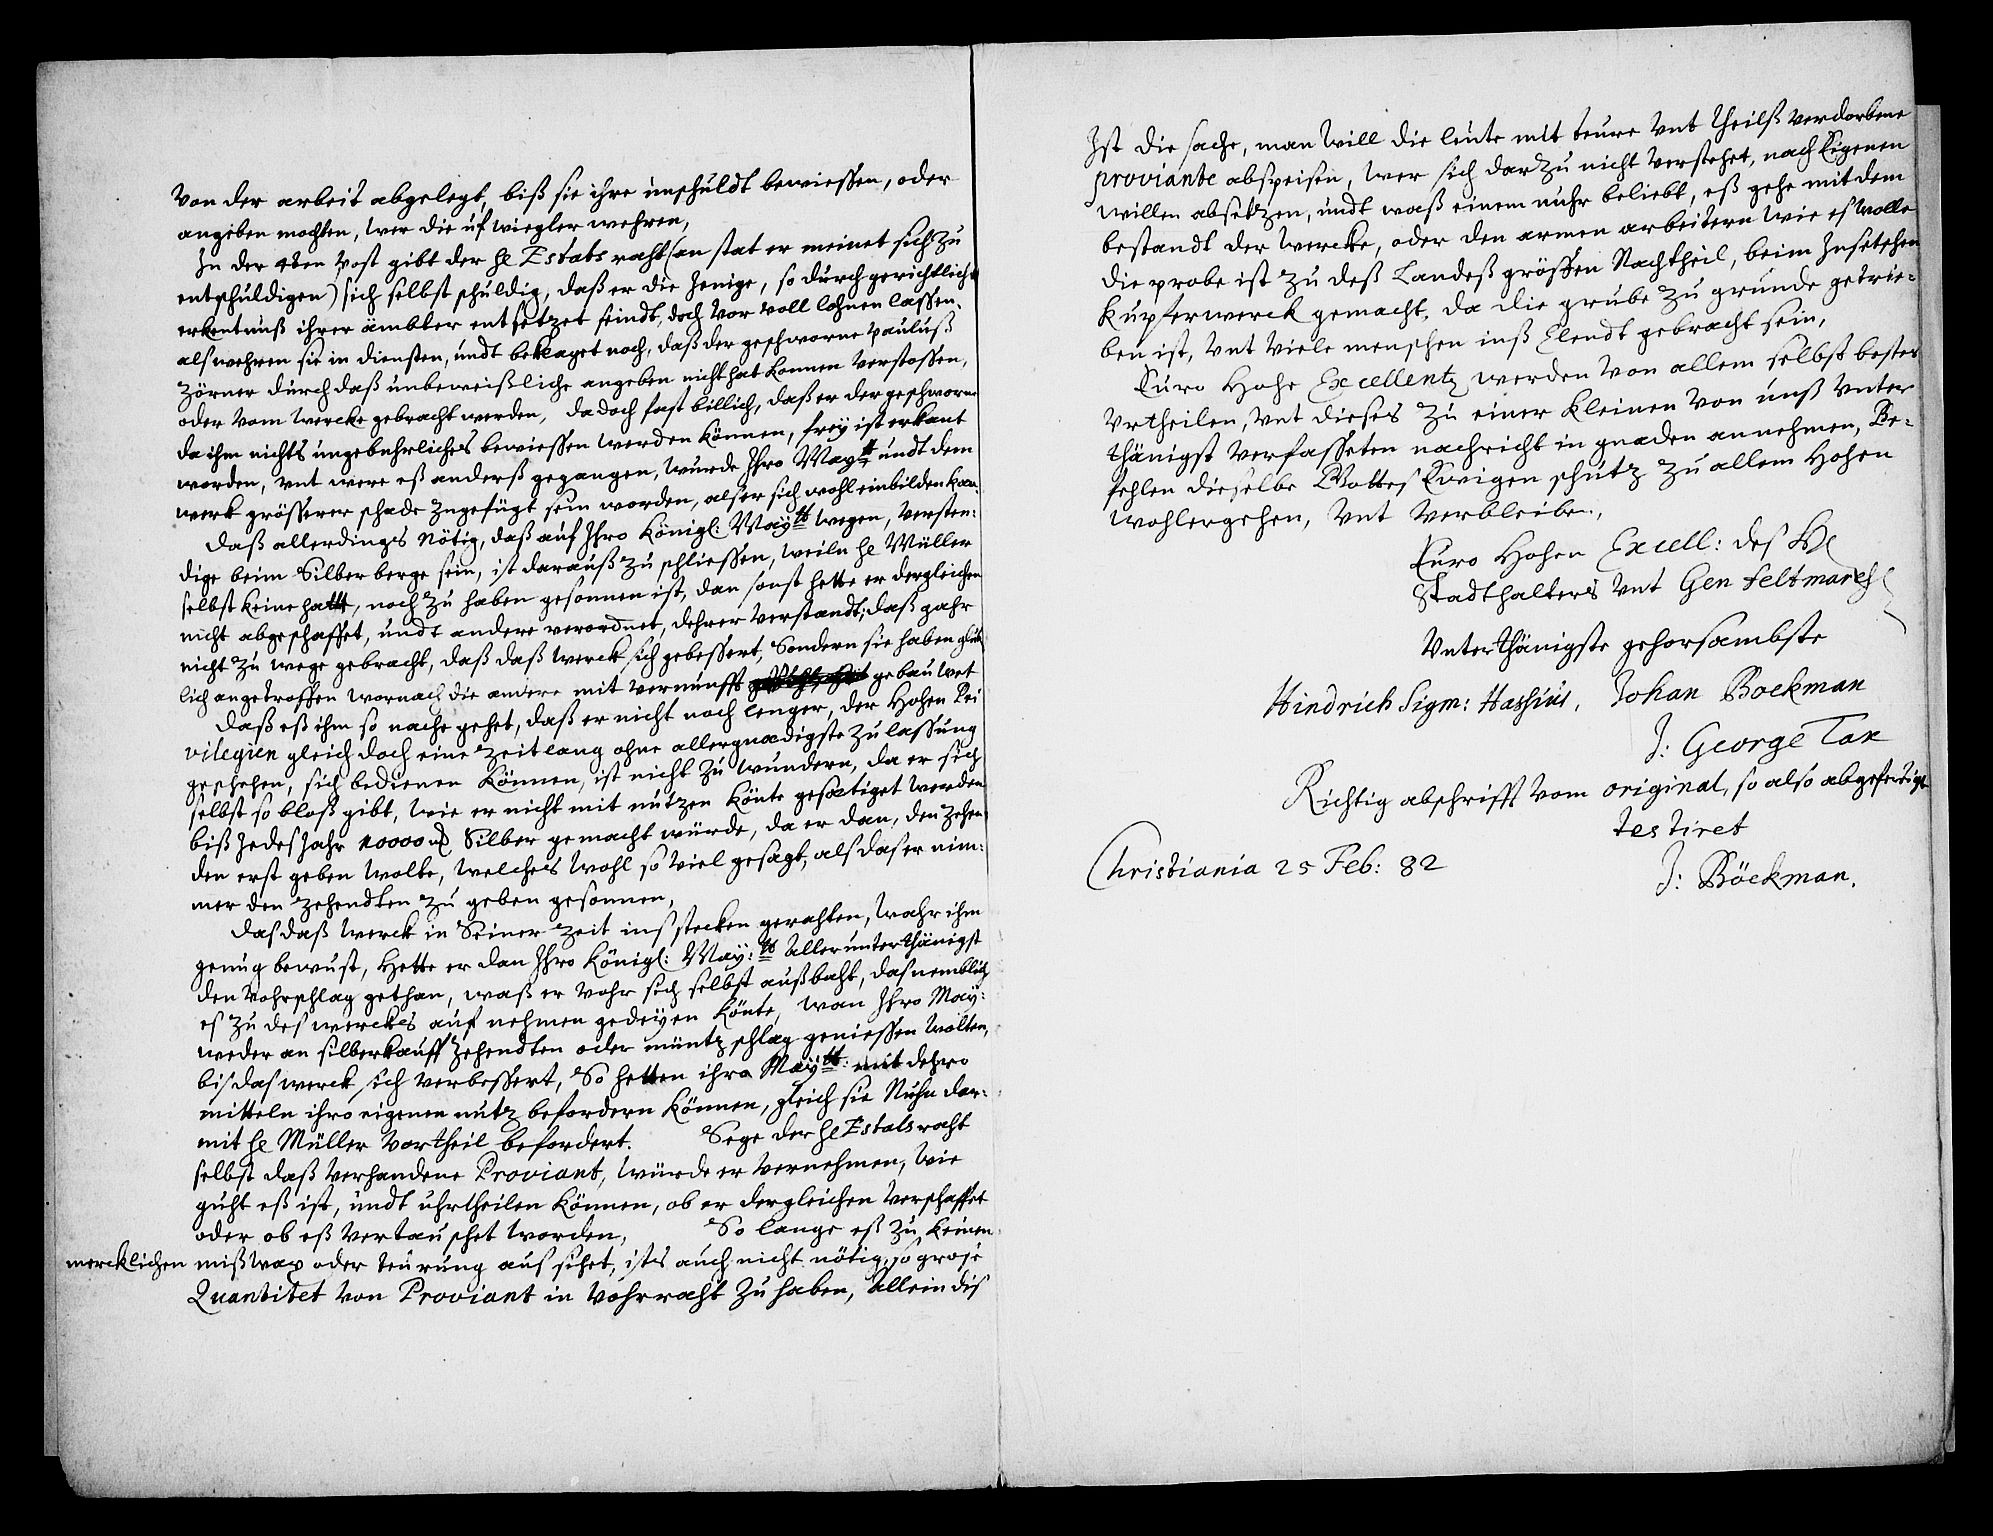 von der arbeit abgelegt, biß sie ihre unschuldt bewiessen, oder
angeben mochten, wer die ufwiegler wehren,
In der 4ten Post gibt der H Estats raht (an stat er meinet sich zu
entschuldigen) sich selbst schuldig, daß er die Jenige, so durch gerichtliche
erkentnuß ihrer ämbter entsetzet seindt, doch vor voll lohnen lassen,
als wehren sie in diensten, undt beklaget noch, daß der geschworne Pauluß
Zörner durch daß unbeweißliche angeben nicht hat konnen verstossen,
oder vom wercke gebracht werden, da doch fast billich, daß er der geschworne
da ihm nichts ungebuhrliches bewiessen werden können, freÿ ist erkant
worden, unt were eß anderß gegangen, wurde Ihro Maytt undt dem
werk grösserer schade zugefügt sein worden, als er sich wohl einbilden kan.
Daß allerdings Nötig, daß auf Ihro Königl: Maÿtt wegen, versten:
dige beim Silberberge sein, ist darauß zu schliessen, weiln H Müller
selbst keine hatt, noch zu haben gesonnen ist, dan sonst hette er dergleichen
nicht abgeschaffet, undt andere verordnet, dehrer verstandt, daß gahr
nicht zu wege gebracht, daß daß werck sich gebessert, Sondern sie haben glük
lich angetroffen wornach die andere mit vernunfft gebauwet
Daß eß ihm so nache gehet, daß er nicht noch lenger, der Hohen Pri
vilegien gleich doch eine zeitlang ohne allergnædigste zulassung
geschehen, sich bedienen können, ist nicht zu wundern, da er sich
selbst so bloß gibt, wie er nicht mit nutzen könte gesætiget werden
biß Jedes Jahr 10000 Silber gemacht würde, da er dan, den zehen
den erst geben wolte, welches wohl so viel gesagt, als das er nim:
mer den zehendten zu geben gesonnen,
Das daß werck in Seiner zeit ins stecken gerahten, wahr ihm
genug bewust, hette er dan Ihro Königl: Maÿ:tt allerunterthänigst
den vohrschlag gethan, waß er vohr sich selbst außbaht, das nemblich
es zu des werckes aufnehmen gedeÿen könte, wan Ihro Maÿ:
weder an silberkauff zehendten oder müntzschlag geniessen wolten,
bis das werck sich verbessert, So hetten ihro Maÿtt: mit dehro
mitteln ihro eigenen nutz befordern können, gleich sie Nuhn dar:
mit H Müller vortheil befordert. Sege der H Estatsraht
selbst daß verhandene Proviant, würde er vernehmen, wie
guht eß ist, undt uhrtheilen können, ob er dergleichen verschaffet
oder ob eß vertauschet worden, So lange eß zu keinen
mercklichen mißwax oder teürung aus sihet, ists auch nicht nötig, so grose
Quantitet von Proviant in vohrraht zu haben, Allein dis
Ist die sache, man will die leute mit teure unt theilß verdorbene
proviante abspeisen, wer sich dar zu nicht verstehet, nach Eigenen
willen absetzen, undt waß einem nuhr beliebt, eß gehe mit dem
bestandt der wercke, oder den armen arbeitern wie es wolle
die probe ist zu deß Landeß grössen Nachtheil, beim Insetschen
Kupferwerck gemacht, da die grube zu grunde getrie:
ben ist, unt viele menschen inß Elendt gebracht sein,
Euro Hohe Excellentz werden von allem selbst bester
urtheilen, unt dieses zu einer kleinen von unß unter
thänigst verfasseten nachricht in gnaden annehmen, Be:
fehlen dieselbe Gottes Ewigen schutz zu allem Hohen
wohlergehen, unt verbleiben,
Euro Hohen Excell: des H
Stadthalters unt Gen feltmarsch
Unterthänigste gehorsambste
Hindrich Sigm: Hassius, Johan Boekman
J: George Tax
Richtig abschrifft vom original, so also abgefertiget
testiret
Christiania 25 Feb: 82
J: Böekman.